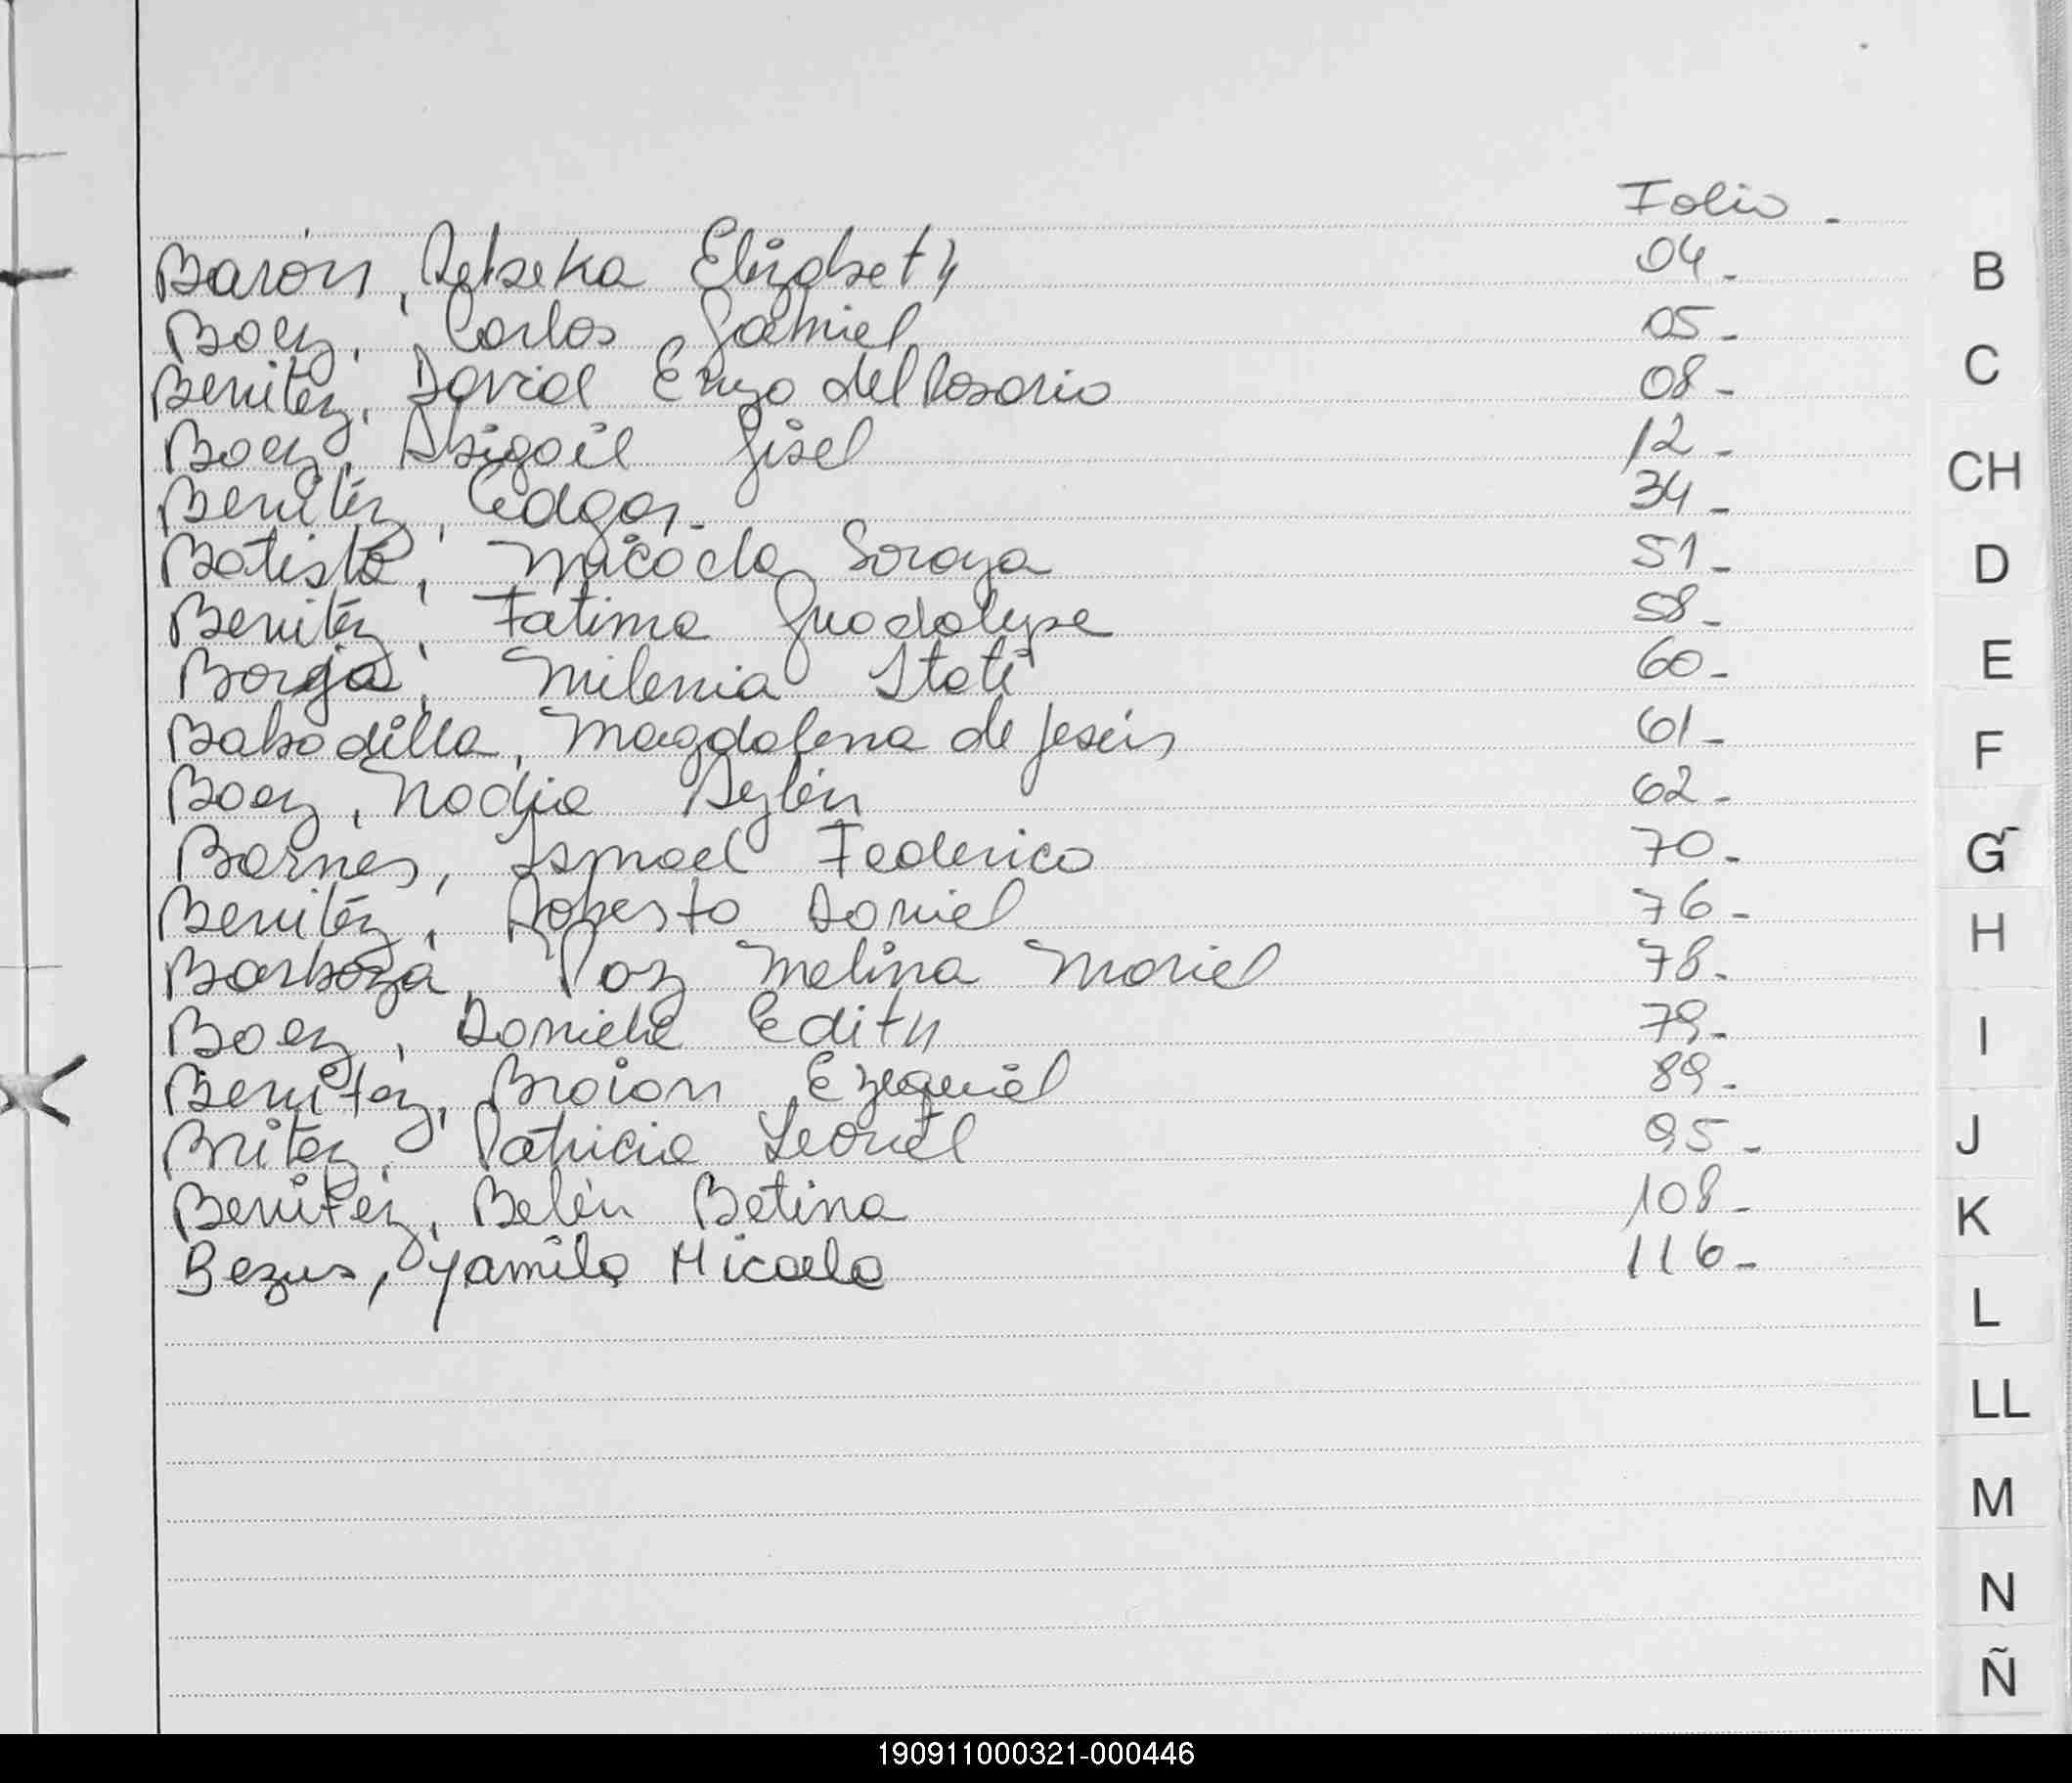 Folio -
Barón, Rebeka Elizabeth 04-
Baez, Carlos Gabriel 05-
Benitez, David Enzo del Rosario 08-
Baez, Abigail Gisel 12-
Benitez, Edgar. 34-
Batista, Micaela Soraya 51-
Benitez, Fatima Guadalupe 58-
Borja, Milenia Itatí 60-
Babadilla, Magdalena de Jesús 61-
Baez, Nadia Aylén 62-
Barnes, Ismael Federico 70-
Benitez, Roberto Daniel 76-
Barboza, Paz Melina Mariel 78-
Baez, Daniela Edith 79-
Benitez, Braian Ezequiel 89-
Britez, Patricia Leonel 95-
Benitez, Belén Betina 108-
Bezus, Yamila Micaela 116-
B
C
CH
D
E
F
G
H
I
J
K
L
LL
M
N
Ñ
190911000321-000446